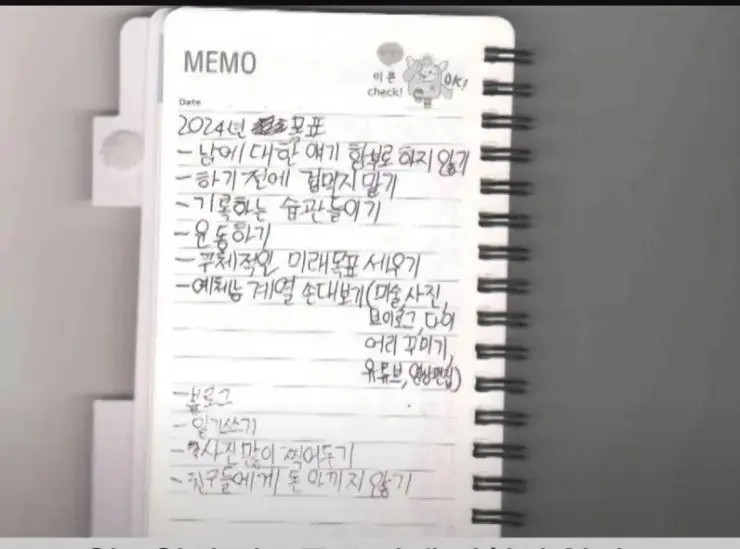 MEMO
비콘
check!
OK!
Date
2024년 목표
-남에 대한 얘기 함부로 하지 않기
-하기 전에 겁먹지 말기
-기록하는 습관들이기
-운동하기
-구체적인 미래목표 세우기
-예체능 계열 손대보기(미술,사진,
브이로그,다이
어리 꾸미기,
유튜브,영상편집)
-블로그
-일기쓰기
-사진많이 찍어두기
-친구들에게 돈 아끼지 않기